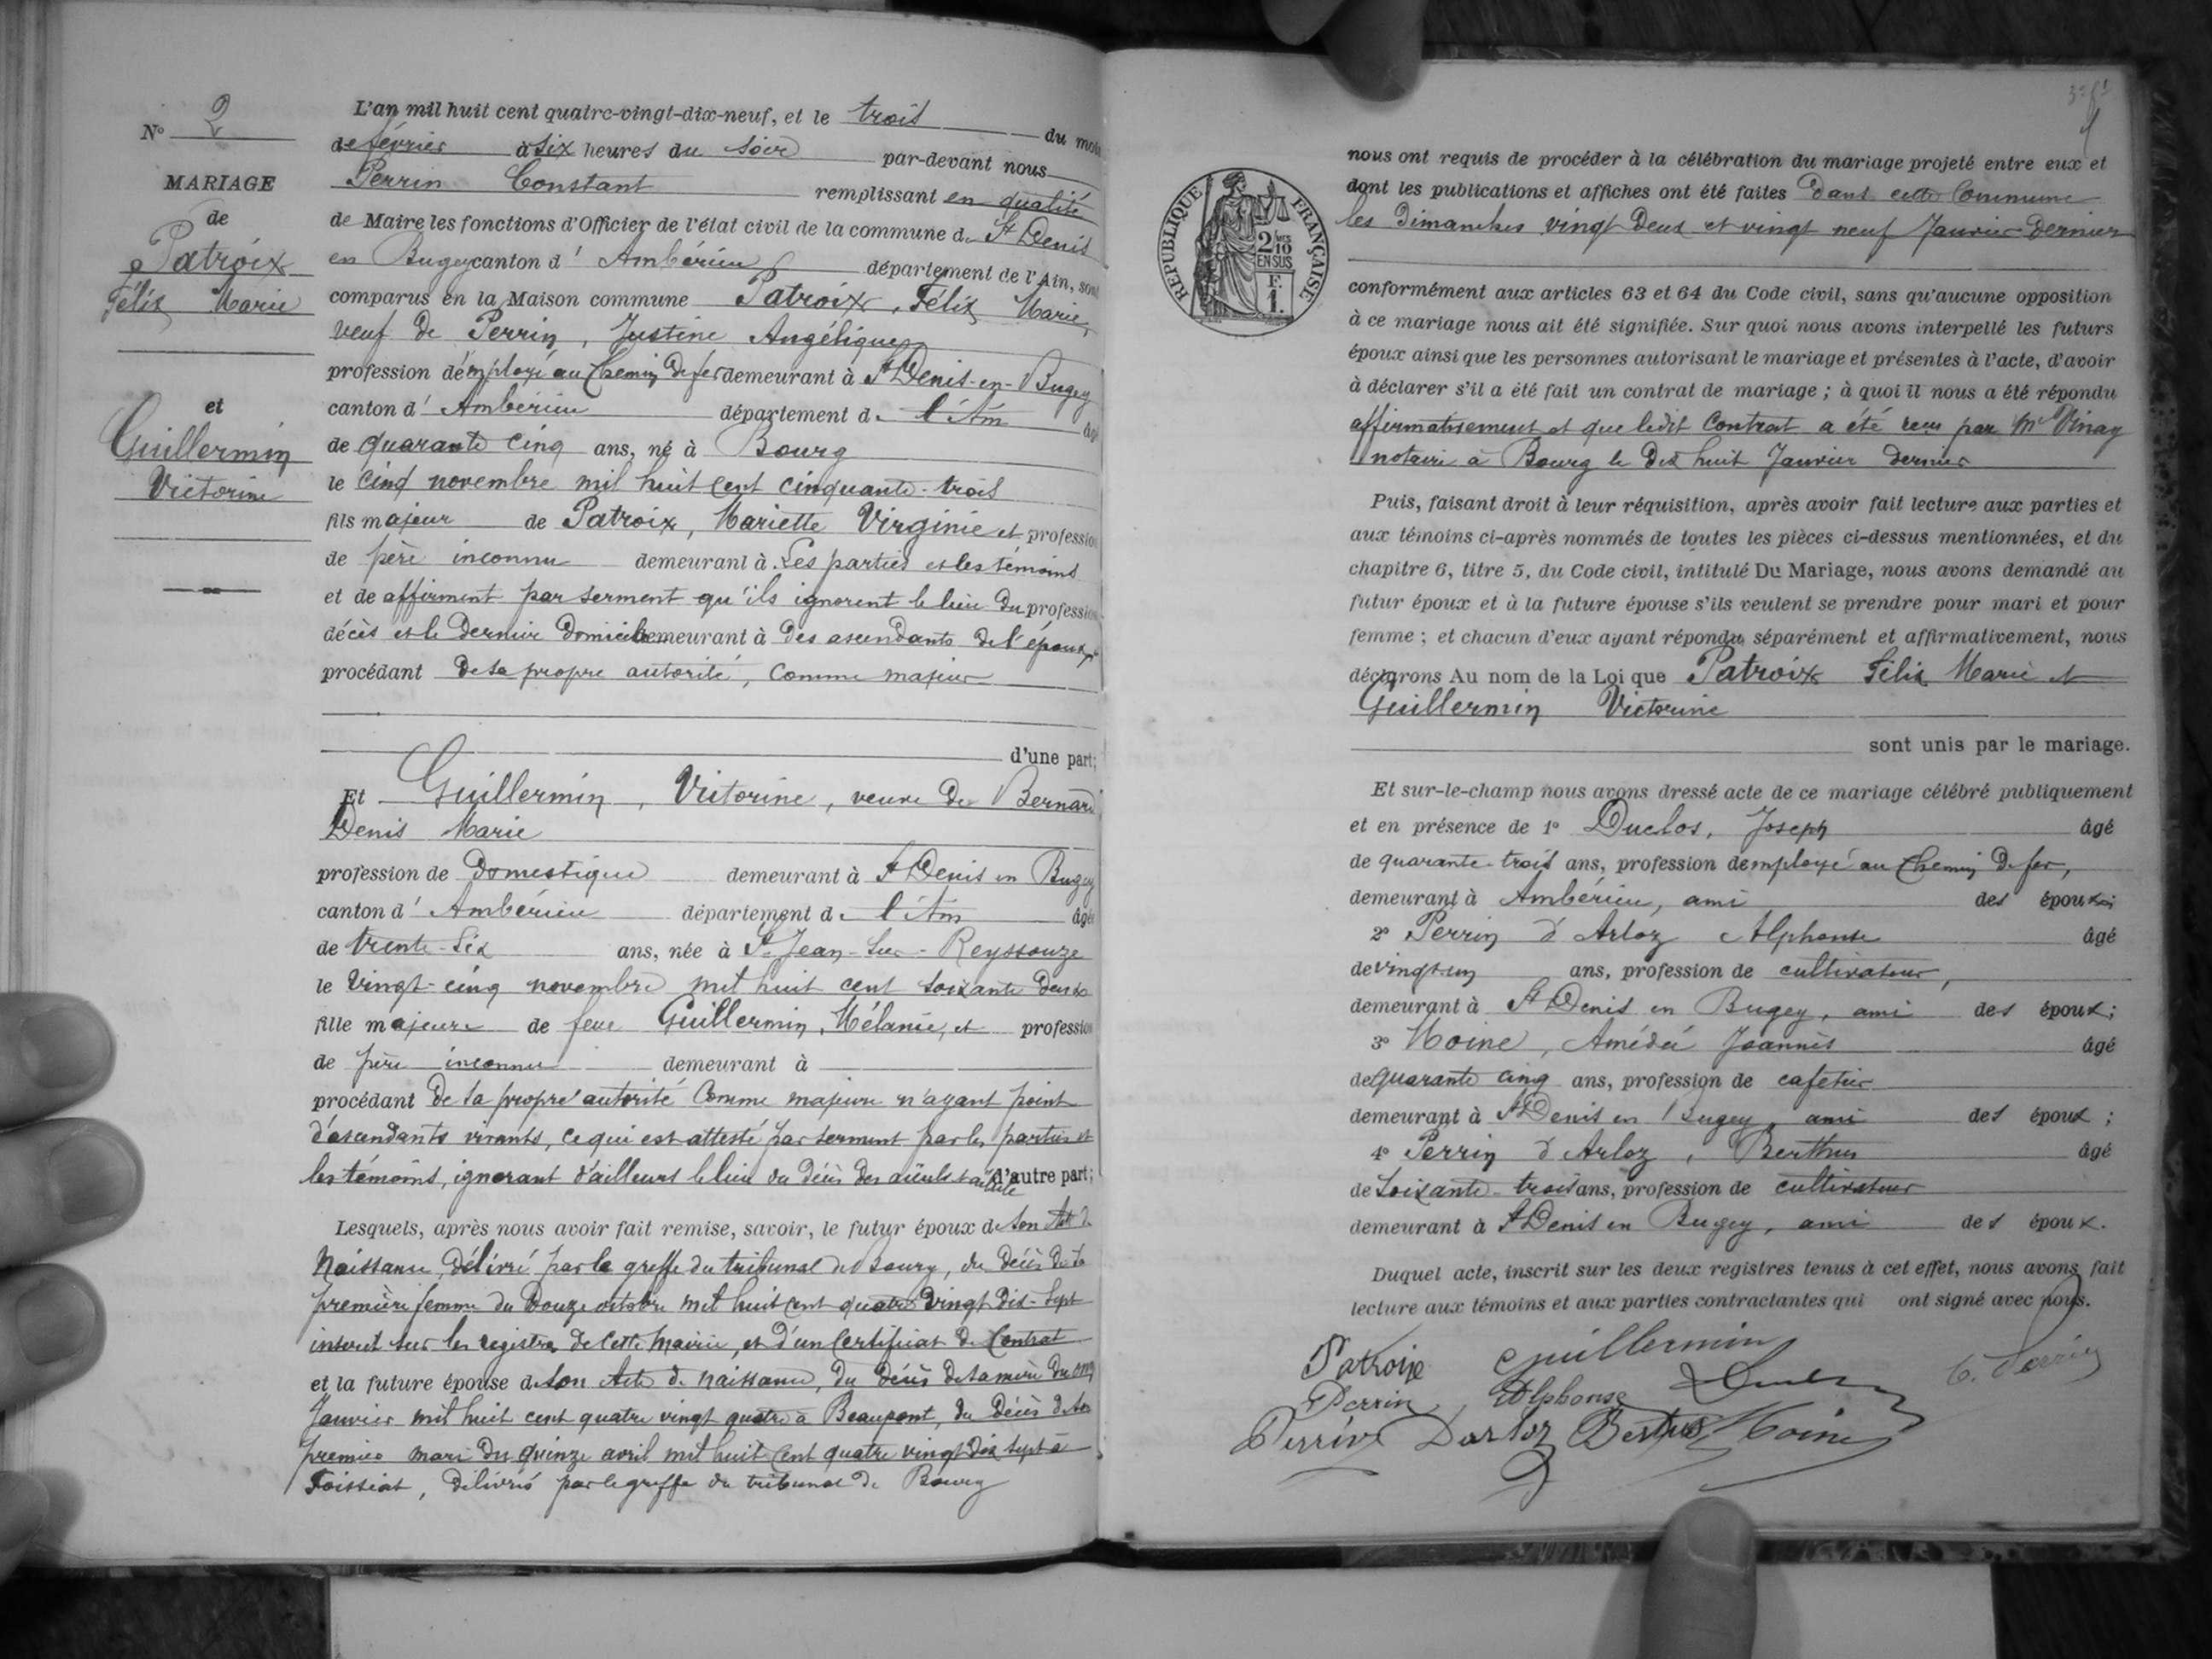 N° 2
MARIAGE
de
Patroix
Félix Marie
et
Guillermin
Victorine
L'an mil huit cent quatre-vingt-dix-neuf, et le trois du mois
de février à six heures du soir par-devant nous
Perrin Constant remplissant en qualité
de Maire les fonctions d'Officier de l'état civil de la commune de St Denis
en Bugey canton d' Ambérieu département de l'Ain, sont
comparus en la Maison commune Patroix, Félix Marie,
veuf de Perrin, Justine Angélique
profession d'employé au Chemin de fer demeurant à St Denis-en-Bugey
canton d' Ambérieu département de l'Ain âgé
de quarante cinq ans, né à Bourg
le cinq novembre mil huit cent cinquante-trois
fils majeur de Patroix, Mariette Virginie et profession
de père inconnu demeurant à Les parties et les témoins
et de affirment par serment qu'ils ignorent le lieu du profession
décès et le dernier domicile demeurant à des ascendants de l'époux
procédant de sa propre autorité, comme majeur
d'une part;
Et Guillermin, Victorine, veuve de Bernard
Denis Marie
profession de domestique demeurant à St Denis en Bugey
canton d' Ambérieu département de l'Ain âgée
de trente-six ans, née à St Jean-sur-Reyssouze
le vingt-cinq novembre mil huit cent soixante deux
fille majeure de feue Guillermin, Mélanie, et profession
de père inconnu demeurant à
procédant de sa propre autorité comme majeure n'ayant point
d'ascendants vivants, ce qui est attesté par serment par les parties et
les témoins, ignorant d'ailleurs le lieu du décès des aïeuls d'autre part;
Lesquels, après nous avoir fait remise, savoir, le futur époux de son acte de
naissance, délivré par le greffe du tribunal de Bourg, du décès de sa
première femme du douze octobre mil huit cent quatre vingt dix-sept
inscrit sur les registres de cette mairie, et d'un certificat de contrat
et la future épouse de son acte de naissance, du décès de sa mère du onze
Janvier mil huit cent quatre vingt quatre à Beaupont, du décès de son
premier mari du quinze avril mil huit cent quatre vingt dix sept à
Foissiat, délivrés par le greffe du tribunal de Bourg
RÉPUBLIQUE FRANÇAISE
2 MES
10
EN SUS
F.
1.
nous ont requis de procéder à la célébration du mariage projeté entre eux et
dont les publications et affiches ont été faites dans cette Commune
les Dimanches vingt deux et vingt neuf Janvier dernier
conformément aux articles 63 et 64 du Code civil, sans qu'aucune opposition
à ce mariage nous ait été signifiée. Sur quoi nous avons interpellé les futurs
époux ainsi que les personnes autorisant le mariage et présentes à l'acte, d'avoir
à déclarer s'il a été fait un contrat de mariage ; à quoi il nous a été répondu
affirmativement et que ledit Contrat a été reçu par Me Vinay
notaire à Bourg le dix huit Janvier dernier
Puis, faisant droit à leur réquisition, après avoir fait lecture aux parties et
aux témoins ci-après nommés de toutes les pièces ci-dessus mentionnées, et du
chapitre 6, titre 5, du Code civil, intitulé Du Mariage, nous avons demandé au
futur époux et à la future épouse s'ils veulent se prendre pour mari et pour
femme ; et chacun d'eux ayant répondu séparément et affirmativement, nous
déclarons Au nom de la Loi que Patroix Félix Marie et
Guillermin Victorine
sont unis par le mariage.
Et sur-le-champ nous avons dressé acte de ce mariage célébré publiquement
et en présence de 1° Duclos, Joseph âgé
de quarante-trois ans, profession d'employé au Chemin de fer,
demeurant à Ambérieu, ami des époux;
2° Perrin d'Arloz Alphonse âgé
de vingt-un ans, profession de cultivateur,
demeurant à St Denis en Bugey, ami des époux;
3° Moine, Amédée Joannès âgé
de quarante cinq ans, profession de cafetier
demeurant à St Denis en Bugey, ami des époux ;
4° Perrin d'Arloz, Berthus âgé
de soixante-trois ans, profession de cultivateur
demeurant à St Denis en Bugey, ami des époux.
Duquel acte, inscrit sur les deux registres tenus à cet effet, nous avons fait
lecture aux témoins et aux parties contractantes qui ont signé avec nous.
Patroix Guillermin
Perrin Alphonse Duclos C. Perrin
Perrin Darloz Berthus Moine